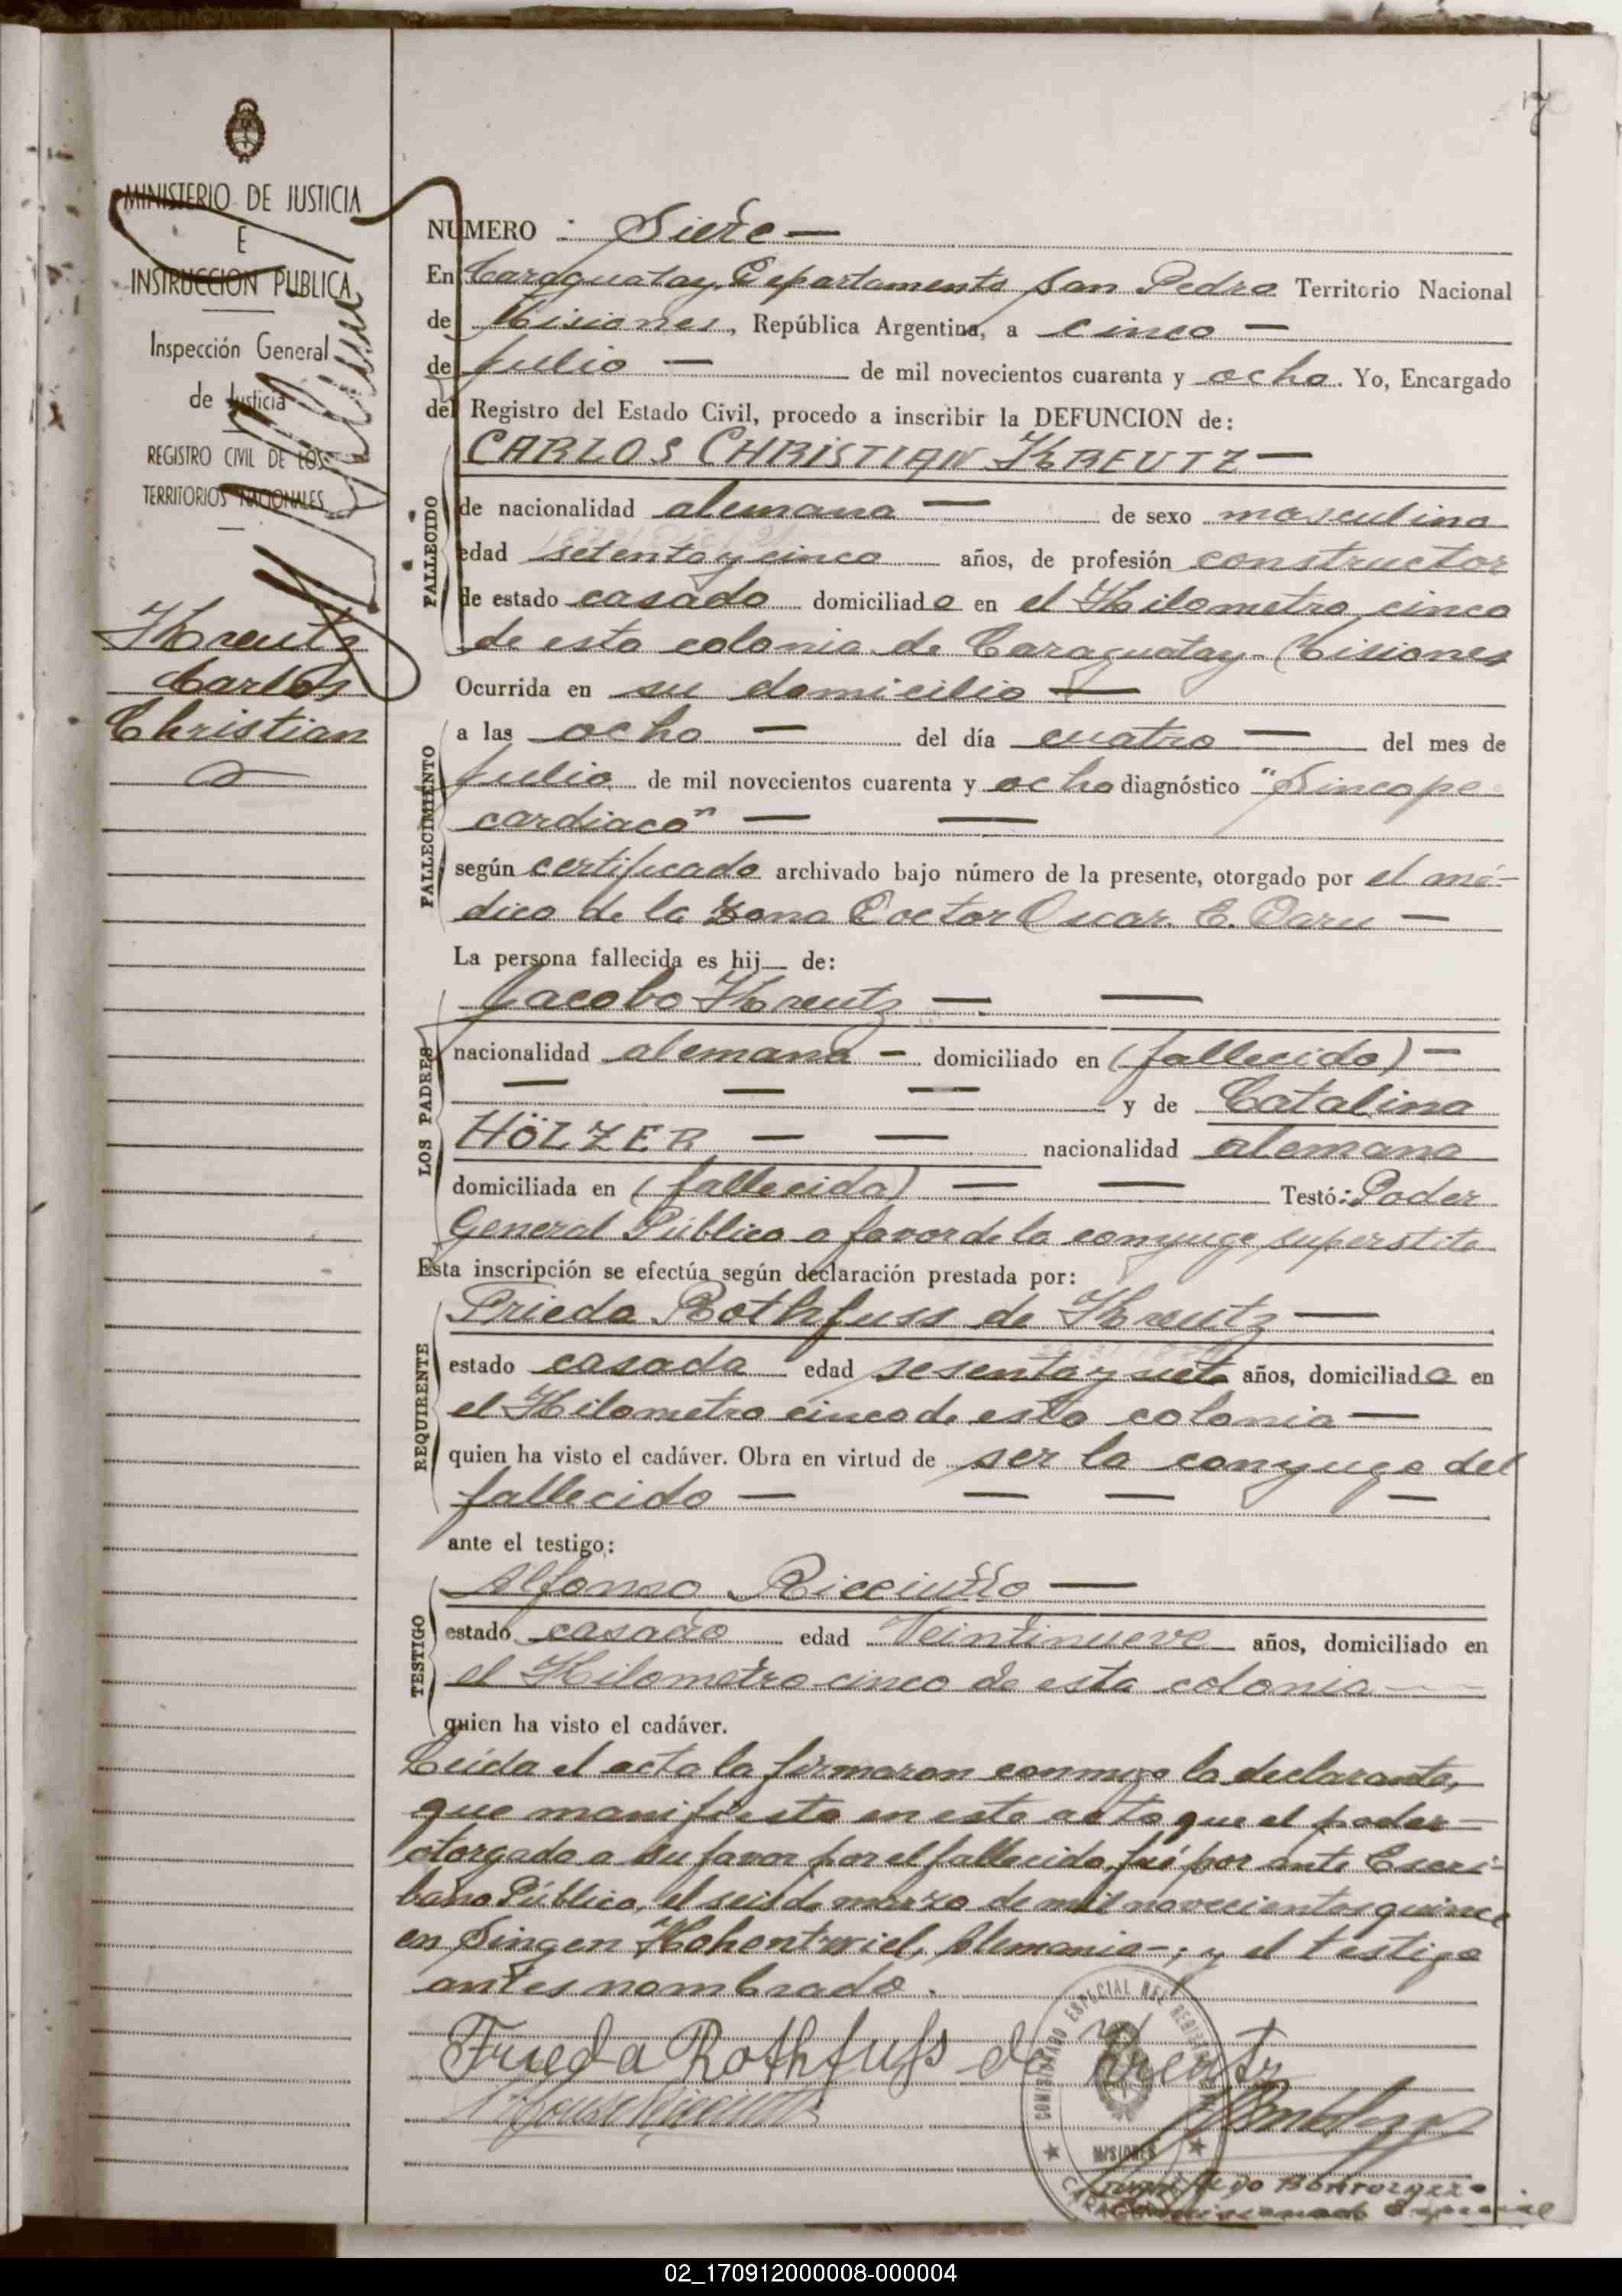 7
MINISTERIO DE JUSTICIA
E
INSTRUCCION PUBLICA
Inspección General
de Justicia
REGISTRO CIVIL DE LOS
TERRITORIOS NACIONALES
Kreutz
Carlos
Christian
NUMERO : Siete —
En Caraguatay, Departamento San Pedro Territorio Nacional
de Misiones, República Argentina, a cinco —
de Julio — de mil novecientos cuarenta y ocho. Yo, Encargado
del Registro del Estado Civil, procedo a inscribir la DEFUNCION de:
CARLOS CHRISTIAN KREUTZ —
FALLECIDO
de nacionalidad alemana — de sexo masculino
edad setenta y cinco años, de profesión constructor
de estado casado domiciliado en el Kilometro cinco
de esta colonia de Caraguatay - Misiones
Ocurrida en su domicilio —
FALLECIMIENTO
a las ocho — del día cuatro — del mes de
Julio de mil novecientos cuarenta y ocho diagnóstico "Sincope
cardiaco" — —
según certificado archivado bajo número de la presente, otorgado por el mé-
dico de la zona Doctor Oscar E. Daru —
La persona fallecida es hij— de:
LOS PADRES
Jacobo Kreutz — —
nacionalidad alemana — domiciliado en (fallecido) —
— — — y de Catalina
HÖLZER — — nacionalidad alemana
domiciliada en (fallecida) — — Testó: Poder
General Público a favor de la conyuge superstite
Esta inscripción se efectúa según declaración prestada por:
REQUIRENTE
Frieda Rothfuss de Kreutz —
estado casada edad sesenta y siete años, domiciliada en
el Kilometro cinco de esta colonia —
quien ha visto el cadáver. Obra en virtud de ser la conyuge del
fallecido — — — —
ante el testigo:
TESTIGO
Alfonso Ricciutto —
estado casado edad Veintinueve años, domiciliado en
el Kilometro cinco de esta colonia —
quien ha visto el cadáver.
Leída el acta la firmaron conmigo la declarante,
que manifiesta en este acto que el poder —
otorgado a su favor por el fallecido, fué por ante Escri-
bano Público, el seis de marzo de mil novecientos quince
en Singen Hohentwiel, Alemania -; y el testigo
antes nombrado.
Frieda Rothfuss de Kreutz
COMISARIADO ESPECIAL DEL
MISIONES
Comisionado Especial
02_170912000008-000004